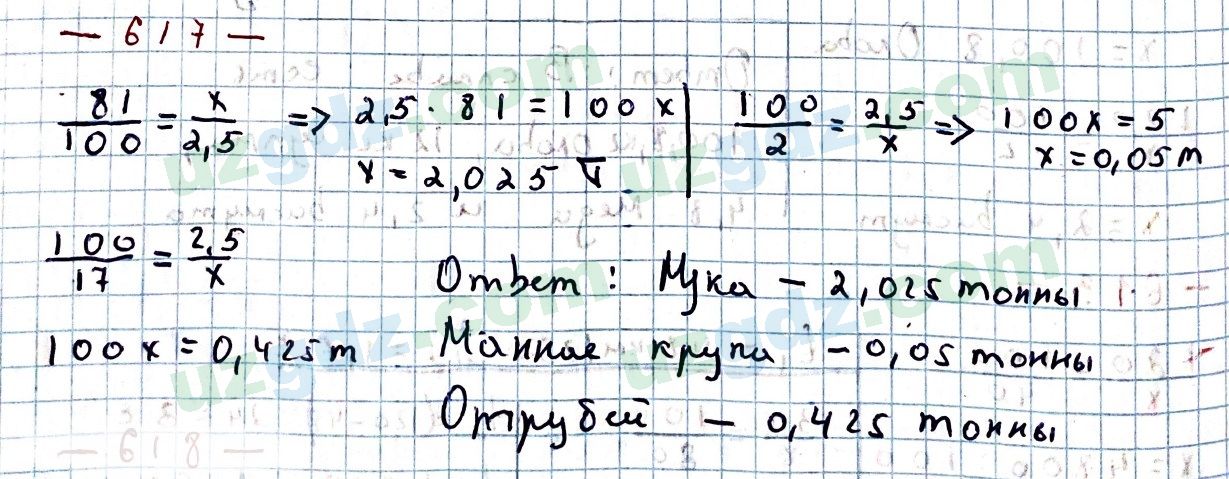 — 617 —
81/100 = x/2,5 => 2,5 · 81 = 100x
x = 2,025 т
100/2 = 2,5/x => 100x = 5
x = 0,05 т
100/17 = 2,5/x
100x = 0,425 т
Ответ: Мука — 2,025 тонны
Манная крупа — 0,05 тонны
Отрубей — 0,425 тонны
— 618 —
uzgdz.com
uzgdz.com
uzgdz.com
uzgdz.com